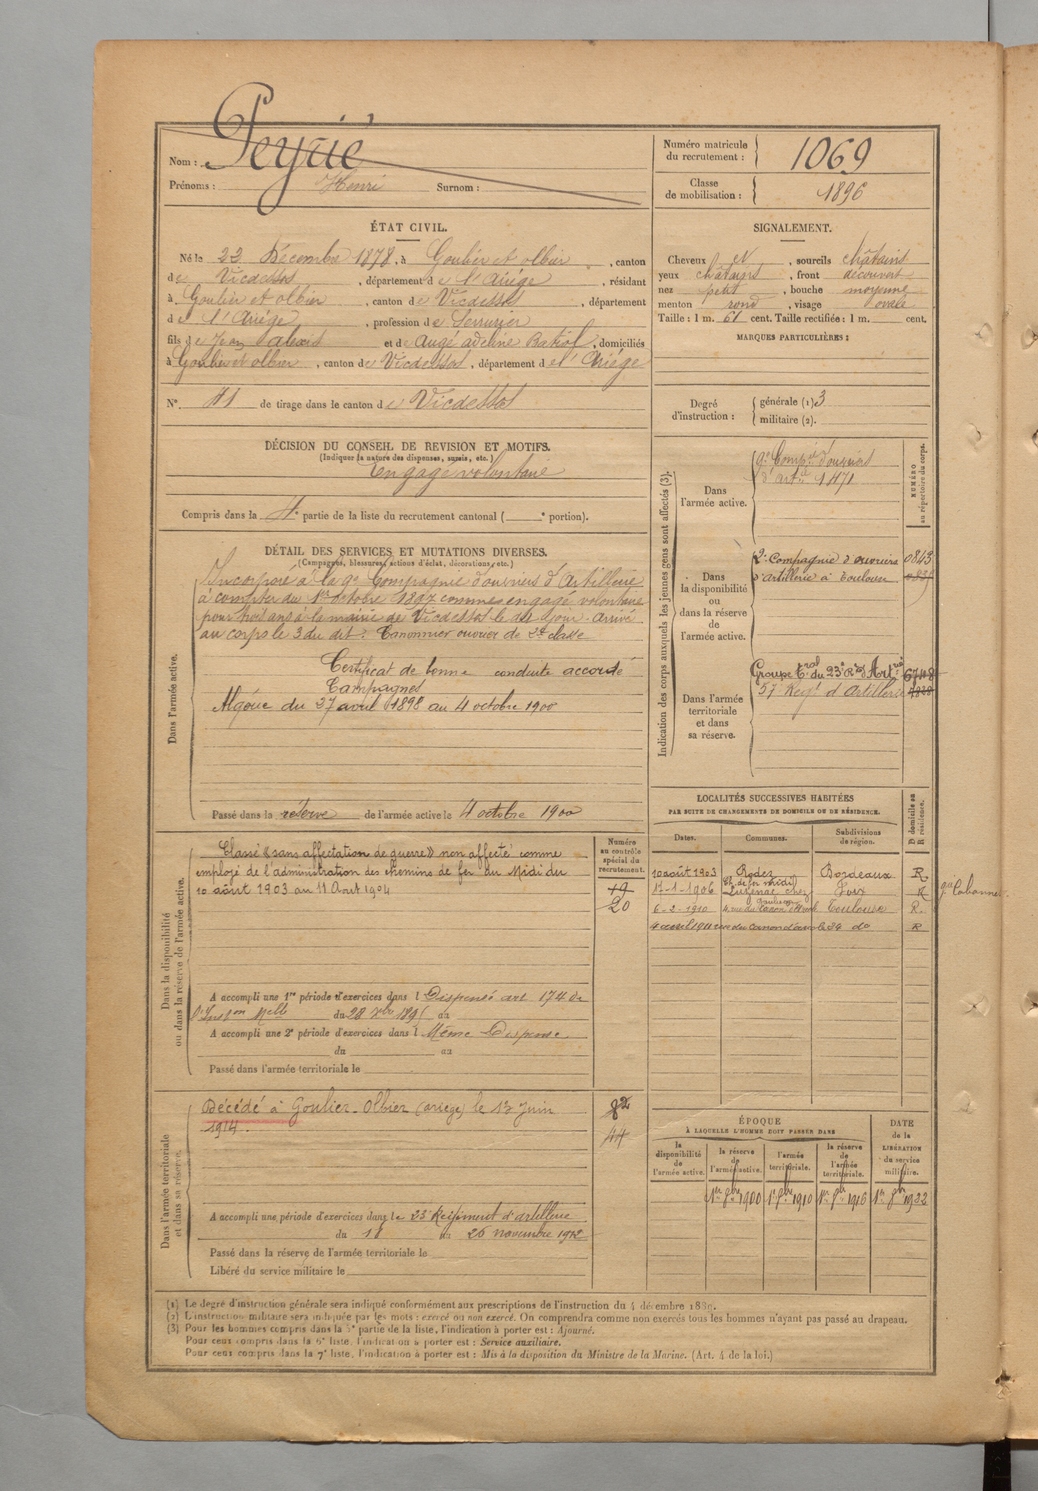 Nom : Peyrié
Prénoms : Henri Surnom :
Numéro matricule du recrutement : 1069
Classe de mobilisation : 1896
ÉTAT CIVIL.
Né le 22 Décembre 1878, à Goulier et olbier, canton
de Vicdessos, département de l'Ariége, résidant
à Goulier et olbier, canton de Vicdessos, département
de l'Ariége, profession de Serrurier
fils de Jean Alexis et de Augé adeline, domiciliés
à Goulier et olbier, canton de Vicdessos, département de l'Ariége
N° 41 de tirage dans le canton de Vicdessos
SIGNALEMENT.
Cheveux et, sourcils châtains
yeux châtains, front découvert
nez petit, bouche moyenne
menton rond, visage ovale
Taille : 1 m. 61 cent. Taille rectifiée : 1 m. cent.
MARQUES PARTICULIÈRES :
Degré d'instruction :
générale (1) 3
militaire (2).
DÉCISION DU CONSEIL DE REVISION ET MOTIFS.
(Indiquer la nature des dispenses, sursis, etc.)
Engagé volontaire
Compris dans la 4e partie de la liste du recrutement cantonal ( e portion).
DÉTAIL DES SERVICES ET MUTATIONS DIVERSES.
(Campagnes, blessures, actions d'éclat, décorations, etc.)
Dans l'armée active.
Incorporé à la 9e Compagnie d'ouvriers d'Artillerie
à compter du 1er octobre 1897 comme engagé volontaire
pour trois ans à la mairie de Vicdessos le dit jour. Arrivé
au corps le 3 du dit. Canonnier ouvrier de 2e classe
Certificat de bonne conduite accordé
Campagnes
Algérie du 27 avril 1898 au 4 octobre 1900
Passé dans la réserve de l'armée active le 4 octobre 1900
Indication des corps auxquels les jeunes gens sont affectés (3).
NUMÉRO au répertoire du corps.
Dans l'armée active.
9e Compie d'ouvriers
d'artie 1471
Dans la disponibilité ou dans la réserve de l'armée active.
2e Compagnie d'ouvriers 0843
d'artillerie à Toulouse
Dans l'armée territoriale et dans sa réserve.
Groupe Tal du 23e Rt d'Artie 6748
57 Regt d'Artillerie
LOCALITÉS SUCCESSIVES HABITÉES
PAR SUITE DE CHANGEMENTS DE DOMICILE OU DE RÉSIDENCE.
Dates. Communes. Subdivisions de région. D domicile ou R résidence.
10 août 1903 Rodez Bordeaux R
Ch. de fer midi
17-1-1906 Luzenac chez Foix R
6-2-1910 Toulouse R.
4 avril 1911 rue du canon d'arcole 34 do R
Dans la disponibilité ou dans la réserve de l'armée active.
Numéro au contrôle spécial du recrutement.
Classé « sans affectation de guerre » non affecté comme
employé de l'administration des chemins de fer du Midi du
10 août 1903 au 11 Août 1904
19
20
A accompli une 1re période d'exercices dans l Dispensé art 174 de
l'Inston Melle du 28 Xbre 1895 au
A accompli une 2e période d'exercices dans l Même Dispense.
du au
Passé dans l'armée territoriale le
Dans l'armée territoriale et dans sa réserve.
Décédé à Goulier-Olbier (ariège) le 13 Juin
1914.
82
44
A accompli une période d'exercices dans le 23e Régiment d'artillerie
du 18 au 26 novembre 1912
Passé dans la réserve de l'armée territoriale le
Libéré du service militaire le
ÉPOQUE
À LAQUELLE L'HOMME DOIT PASSER DANS
la disponibilité de l'armée active.
la réserve de l'armée active.
l'armée territoriale.
la réserve de l'armée territoriale.
DATE de la LIBÉRATION du service militaire.
1er 8bre 1900 1er 8bre 1910 1er 8bre 1916 1er 8bre 1922
(1) Le degré d'instruction générale sera indiqué conformément aux prescriptions de l'instruction du 4 décembre 1889.
(2) L'instruction militaire sera indiquée par les mots : exercé ou non exercé. On comprendra comme non exercés tous les hommes n'ayant pas passé au drapeau.
(3) Pour les hommes compris dans la 5e partie de la liste, l'indication à porter est : Ajourné.
Pour ceux compris dans la 6e liste, l'indication à porter est : Service auxiliaire.
Pour ceux compris dans la 7e liste, l'indication à porter est : Mis à la disposition du Ministre de la Marine. (Art. 4 de la loi.)